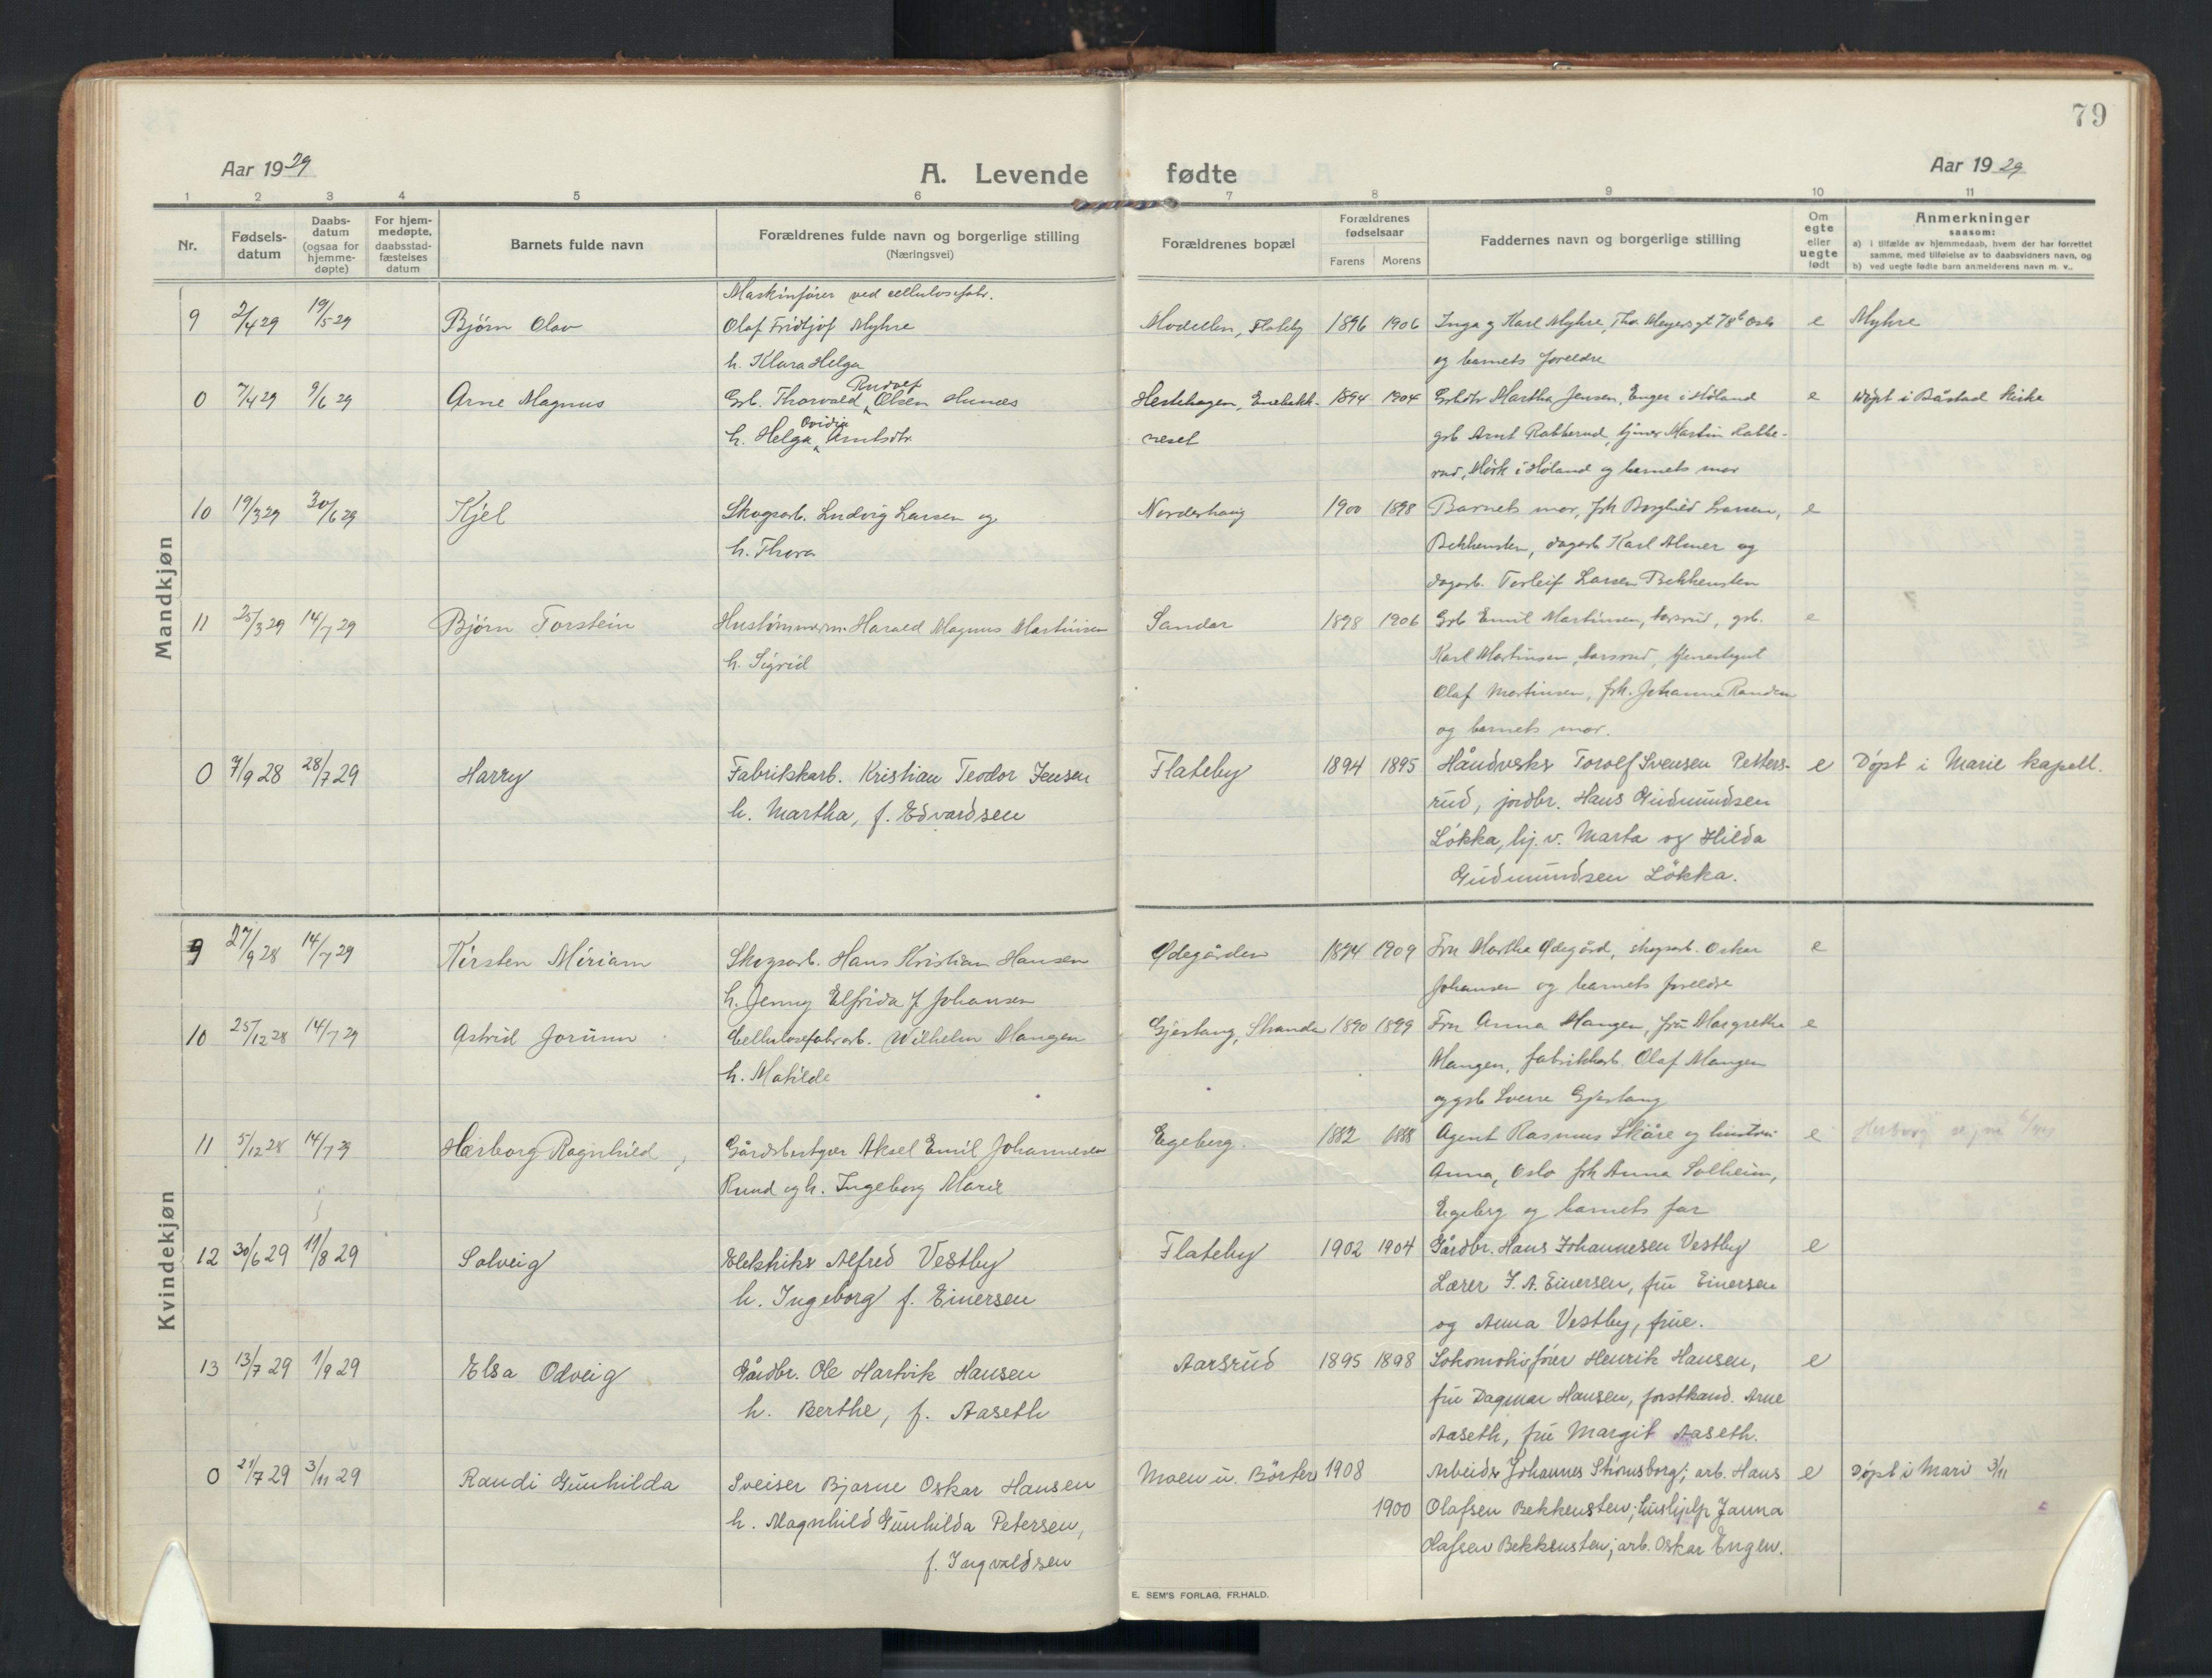 79
Aar 1929
A. Levende fødte
Aar 1929
1 2 3 4 5 6 7 8 9 10 11
Nr.
Fødsels-
datum
Daabs-
datum
(ogsaa for
hjemme-
døpte)
For hjem-
medøpte,
daabsstad-
fæstelses
datum
Barnets fulde navn
Forældrenes fulde navn og borgerlige stilling
(Næringsvei)
Forældrenes bopæl
Forældrenes
fødselsaar
Farens Morens
Faddernes navn og borgerlige stilling
Om
egte
eller
uegte
født
Anmerkninger
saasom:
a) i tilfælde av hjemmedaab, hvem der har forrettet
samme, med tilføielse av to daabsvidners navn, og
b) ved uegte fødte barn anmelderens navn m. v..
Mandkjøn
Maskinfører ved cellulosefabr.
9 2/4 29 19/5 29 Bjørn Olav Olaf Fridtjof Myhre Flateby 1896 1906 Inga og Karl Myhre, Thv. Meyersgt 78b Oslo e Myhre
h. Klara Helga og barnets foreldre
Rudolf
0 7/4 29 9/6 29 Arne Magnus Grb. Thorvald Olsen Hestehagen, Enebakk- 1894 1904 Martha Jensen, Enger i Høland e Døpt i Båstad Kirke
Ovidia
h. Helga Arntsdtr. neset grb Arnt Rabberud, Martin Rabbe-
rud, Mørk i Høland og barnets mor
10 19/3 29 30/6 29 Kjel Skogsarb. Ludvig Larsen og Norderhaug 1900 1898 Barnets mor, frk Borghild Larsen, e
h. Thora Bekkensten, dagarb Karl Almer og
dagarb. Torleif Larsen Bekkensten
11 25/3 29 14/7 29 Bjørn Torstein Hustømmerm. Harald Magnus Martinsen Sandar 1898 1906 Grb Emil Martinsen, Aarsrud, grb. e
h. Sigrid Karl Martinsen, Aarsrud,
Olaf Martinsen, frk. Johanne Randem
og barnets mor.
0 7/9 28 28/7 29 Harry Fabrikkarb. Kristian Teodor Jensen Flateby 1894 1895 Håndverks Torolf Svensen Petters- e Døpt i Marie kapell.
h. Martha, f. Edvardsen rud, jordbr. Hans Gudmundsen
Løkka, hj. v. Marta og Hilda
Gudmundsen Løkka.
Kvindekjøn
9 27/9 28 14/7 29 Kirsten Miriam Skogsarb. Hans Kristian Hansen Ødegården 1894 1909 Fru Martha Ødegård, skogsarb. Oskar e
h. Jenny Elfrida f. Johansen Johansen og barnets foreldre
10 25/12 28 14/7 29 Astrid Jorunn Cellulosefabrarb. Wilhelm Mangen Gjestang, Strande 1890 1899 Fru Anna Mangen, fru Margrethe e
h. Matilde Mangen, fabrikkarb. Olaf Mangen
og grb Sverre Gjestang
11 5/12 28 14/7 29 Herborg Ragnhild Gårdsbestyrer Aksel Emil Johannesen Egeberg. 1882 1888 Agent Rasmus Skåre og hustru e Herborg
Ruud og h. Ingeborg Marie Anna, Oslo frk Anna Solheim,
Egeberg og barnets far
12 30/6 29 11/8 29 Solveig Elektriker Alfred Vestby Flateby 1902 1904 Gårdbr. Hans Johannesen Vestby e
h. Ingeborg f. Einersen Lærer J. A. Einersen, fru Einersen
og Anna Vestby, frue.
13 13/7 29 1/9 29 Elsa Odveig Gårdbr. Ole Hartvik Hansen Aarsrud 1895 1898 Lokomotivfører Henrik Hansen, e
h. Berthe, f. Aaseth fru Dagmar Hansen, forstkand. Arne
Aaseth, fru Margit Aaseth.
0 21/7 29 3/11 29 Randi Gunhilda Sveiser Bjarne Oskar Hansen Moen u. Børter 1908 Arbeider Johannes Strømsborg; arb. Hans e Døpt i Mari 3/11
h. Magnhild Gunhilda Petersen, 1900 Olafsen Bekkensten; hushjelp Janna
f. Ingvaldsen Olafsen Bekkensten; arb. Oskar Engen.
E. SEM'S FORLAG, FR.HALD.